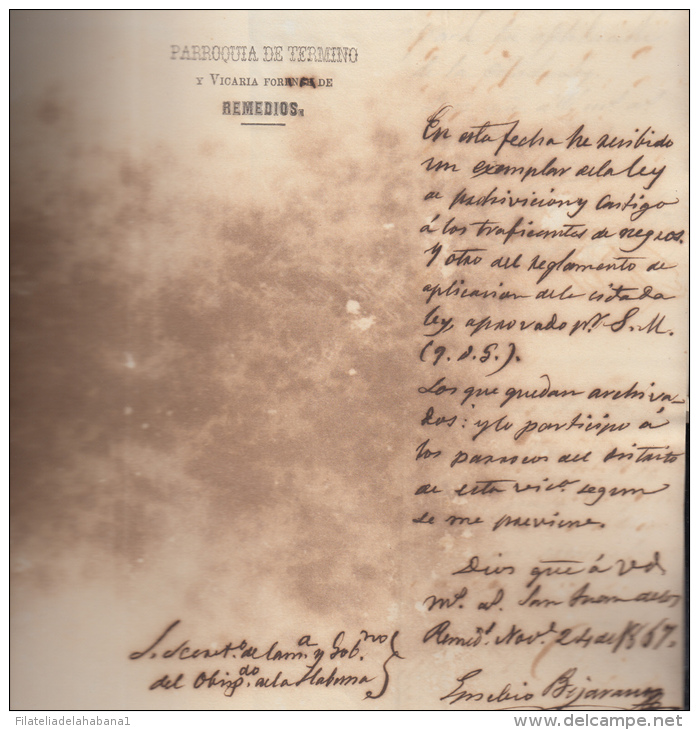 PARROQUIA DE TERMINO
Y VICARIA FORANEA DE
REMEDIOS.
En esta fecha he resibido
un exemplar de la ley
de prohivicion y Castigo
á los traficantes de negros.
Y otro del reglamento de
aplicacion dela citada
ley, aprovado pr. S. M.
(q. D. G.).
Los que quedan archiva-
dos: y lo participo á
los parrocos del distrito
de esta vica. segun
se me previene.
Dios gue á Vd.
ms. as. San Juan delos
Remeds. Nove. 24 de 1867.
Eusebio Bejarano
S. Secreto. de Cama. y Gobno
del Obispdo. de la Habana
Filateliadelahabana1
www.delcampe.net